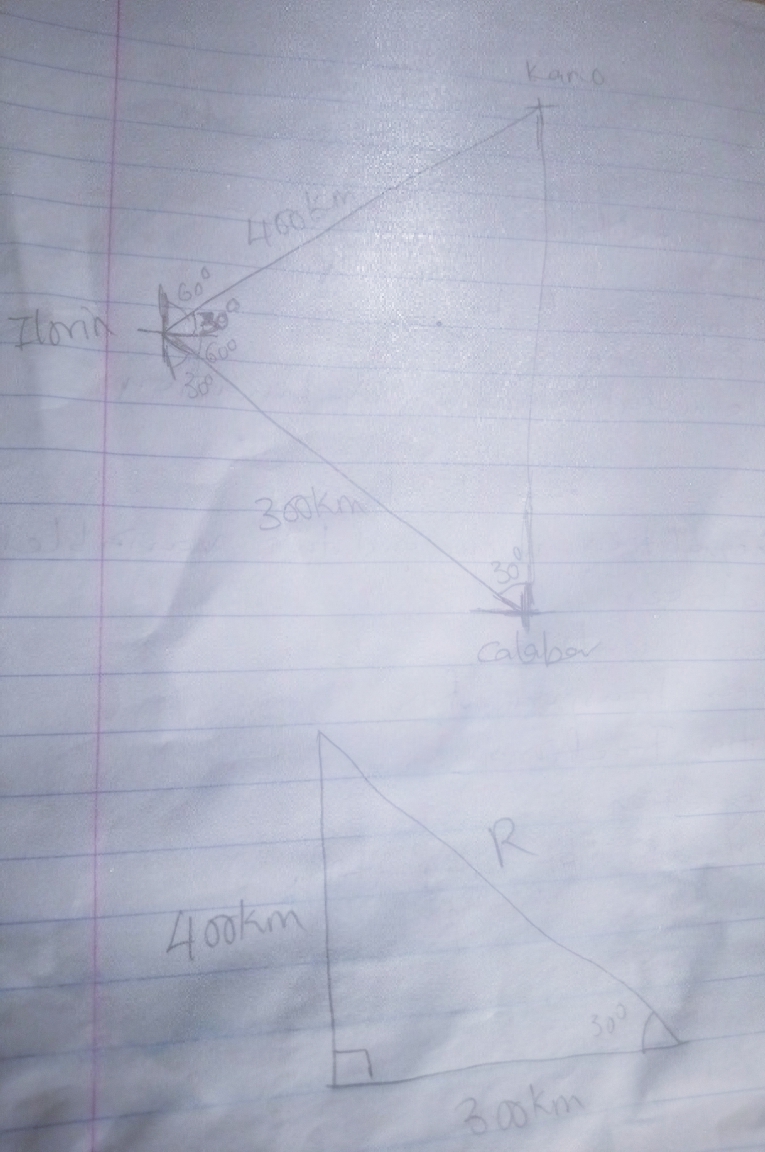 Kano
400km
60°
30°
Ilorin
60°
30°
300km
30°
Calabar
R
400km
30°
300km